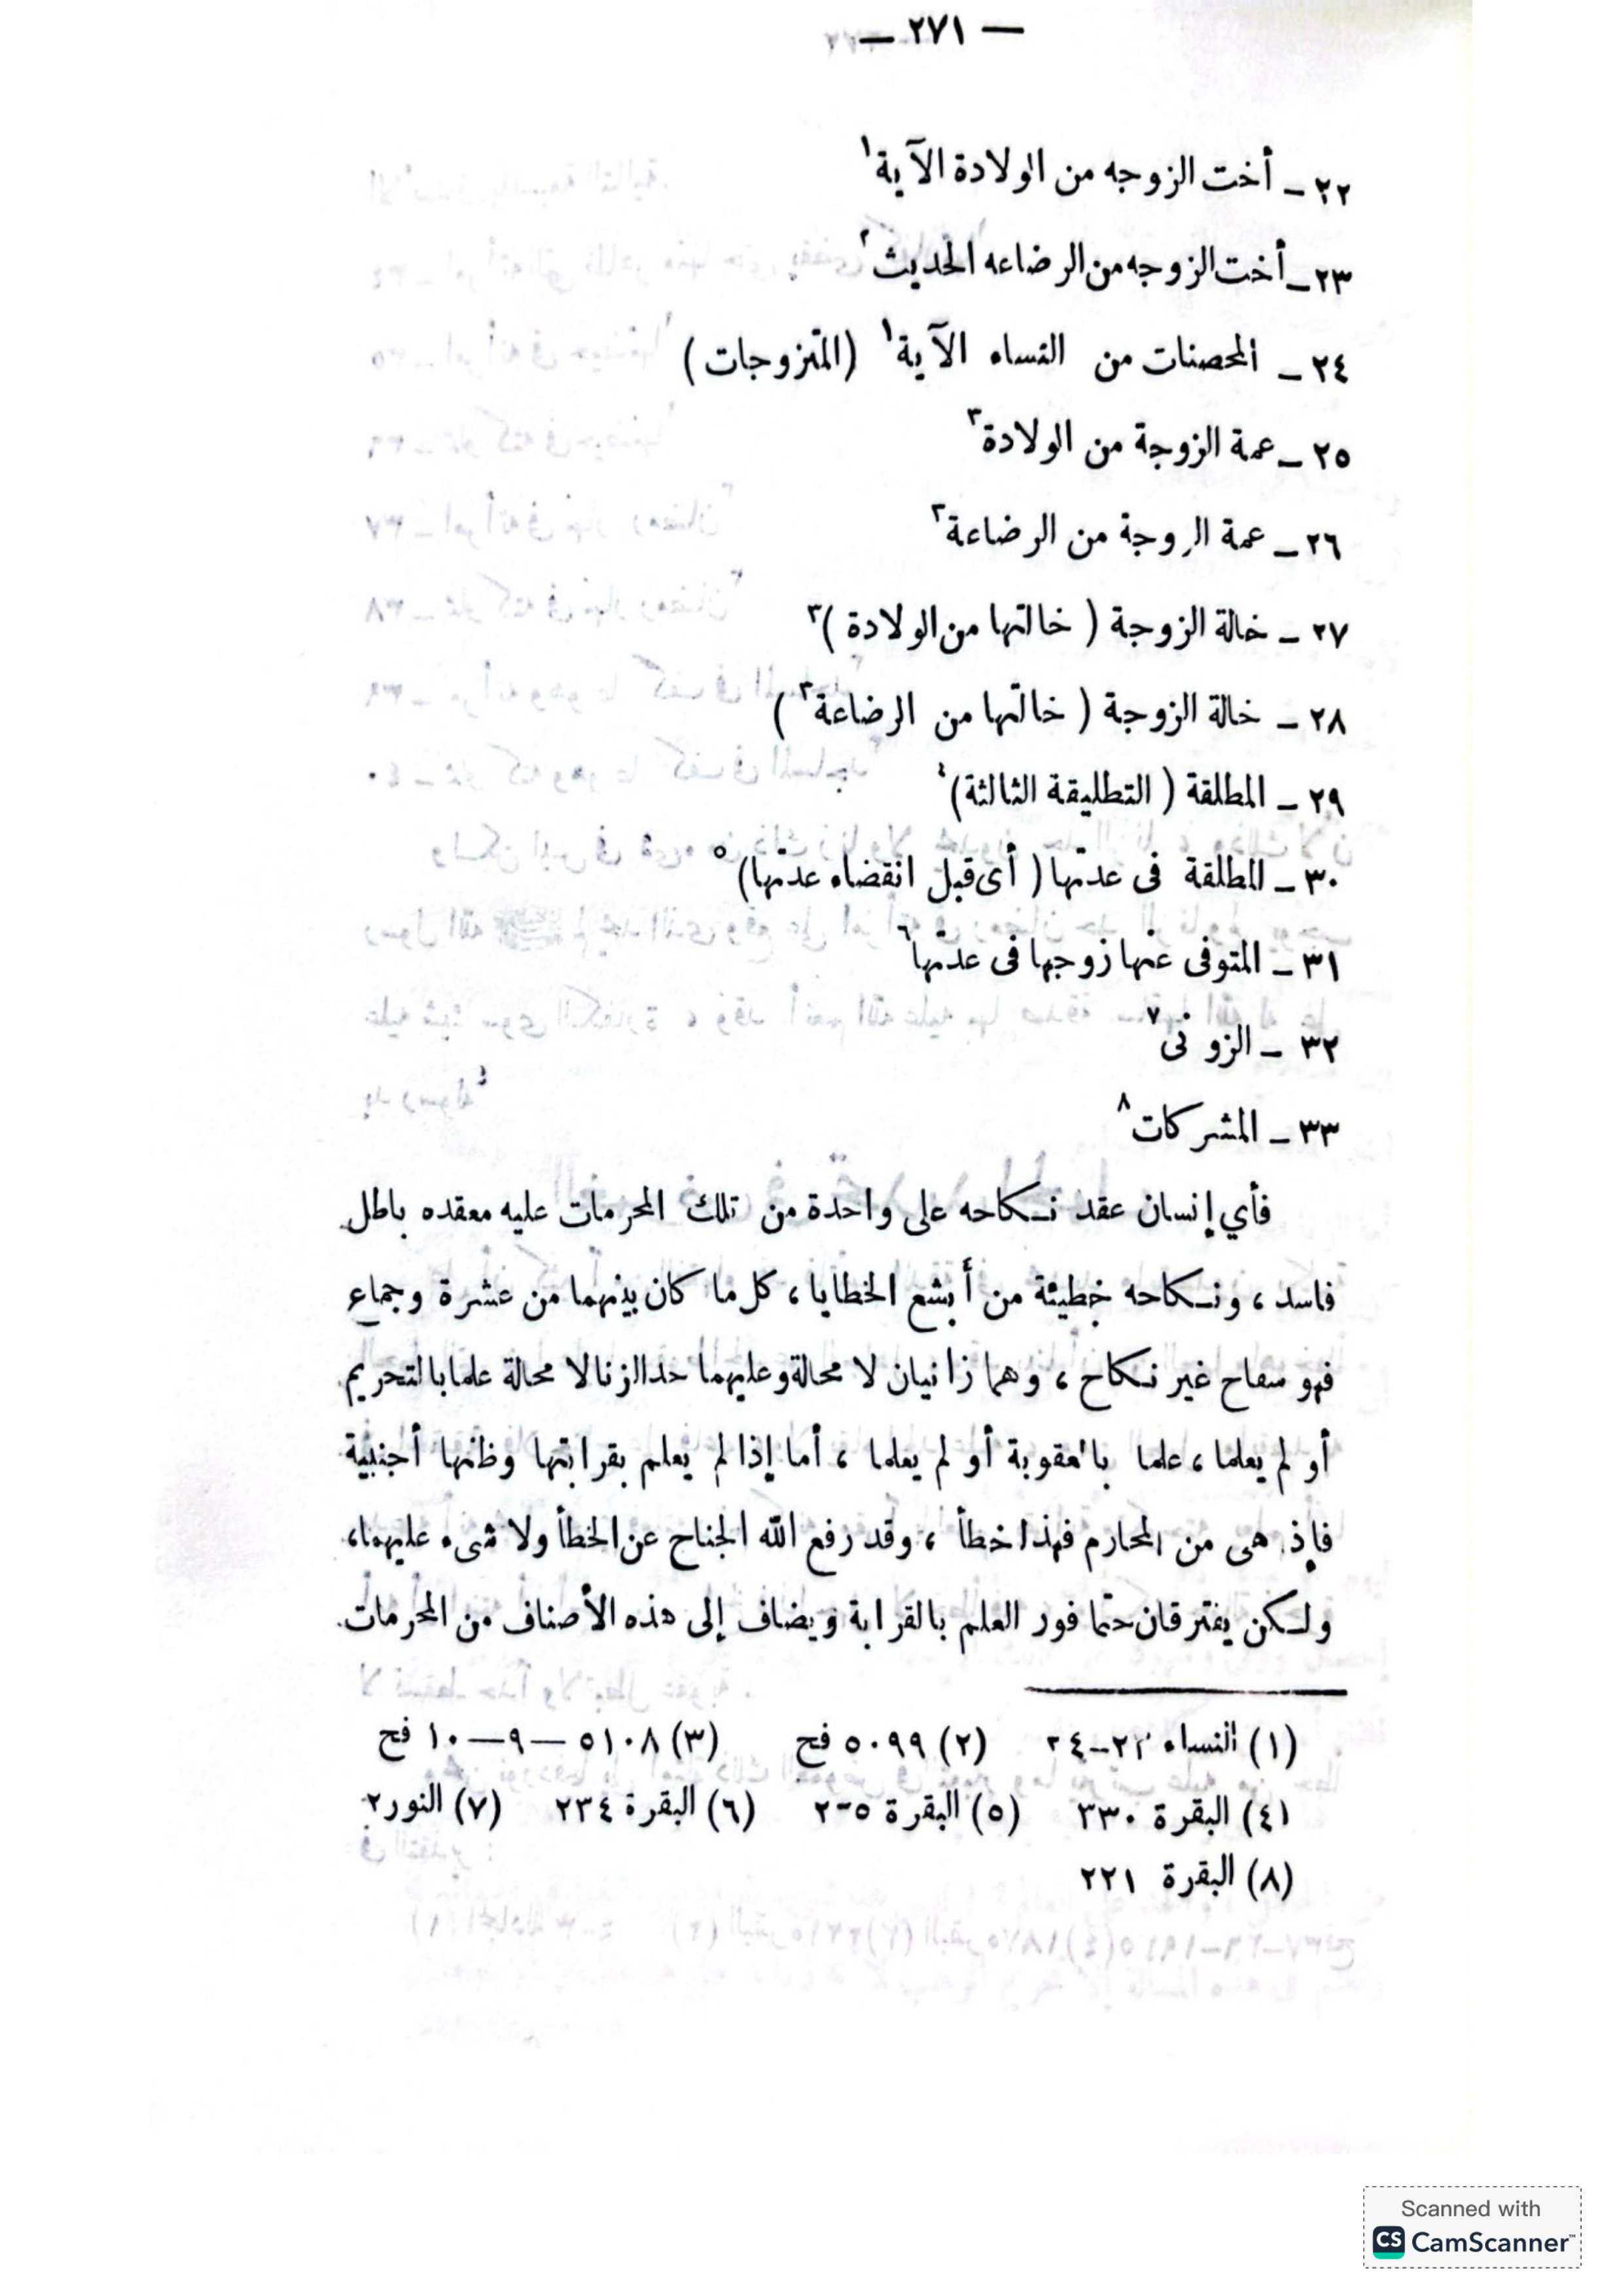 — ٢٧١ —
٢٢ – أخت الزوجه من الولادة الآية١
٢٣ – أخت الزوجه من الرضاعه الحديث٢
٢٤ – المحصنات من النساء الآية١ (المتزوجات)
٢٥ – عمة الزوجة من الولادة٣
٢٦ – عمة الزوجة من الرضاعة٣
٢٧ – خالة الزوجة ( خالتها من الولادة )٣
٢٨ – خالة الزوجة ( خالتها من الرضاعة٣ )
٢٩ – المطلقة ( التطليقة الثالثة)٤
٣٠ – المطلقة فى عدتها ( أى قبل انقضاء عدتها)٥
٣١ – المتوفى عنها زوجها فى عدتها٦
٣٢ – الزوانى٧
٣٣ – المشركات٨
فأي إنسان عقد نكاحه على واحدة من تلك المحرمات عليه معقده باطل
فاسد ، ونكاحه خطيئة من أبشع الخطايا ، كل ما كان بينهما من عشرة وجماع
فهو سفاح غير نكاح ، وهما زانيان لا محالة وعليهما حد الزنا لا محالة علما بالتحريم
أو لم يعلما ، علما بالعقوبة أو لم يعلما ، أما إذا لم يعلم بقرابتها وظنها أجنبية
فإذ هى من المحارم فهذا خطأ ، وقد رفع الله الجناح عن الخطأ ولا شىء عليهما،
ولكن يفترقان حتما فور العلم بالقرابة ويضاف إلى هذه الأصناف من المحرمات
(١) النساء ٢٣–٢٤ (٢) ٥٠٩٩ فح (٣) ٥١٠٨ — ٩ — ١٠ فح
(٤) البقرة ٢٣٠ (٥) البقرة (٦) البقرة ٢٣٤ (٧) النور ٢
(٨) البقرة ٢٢١
Scanned with
CS CamScanner